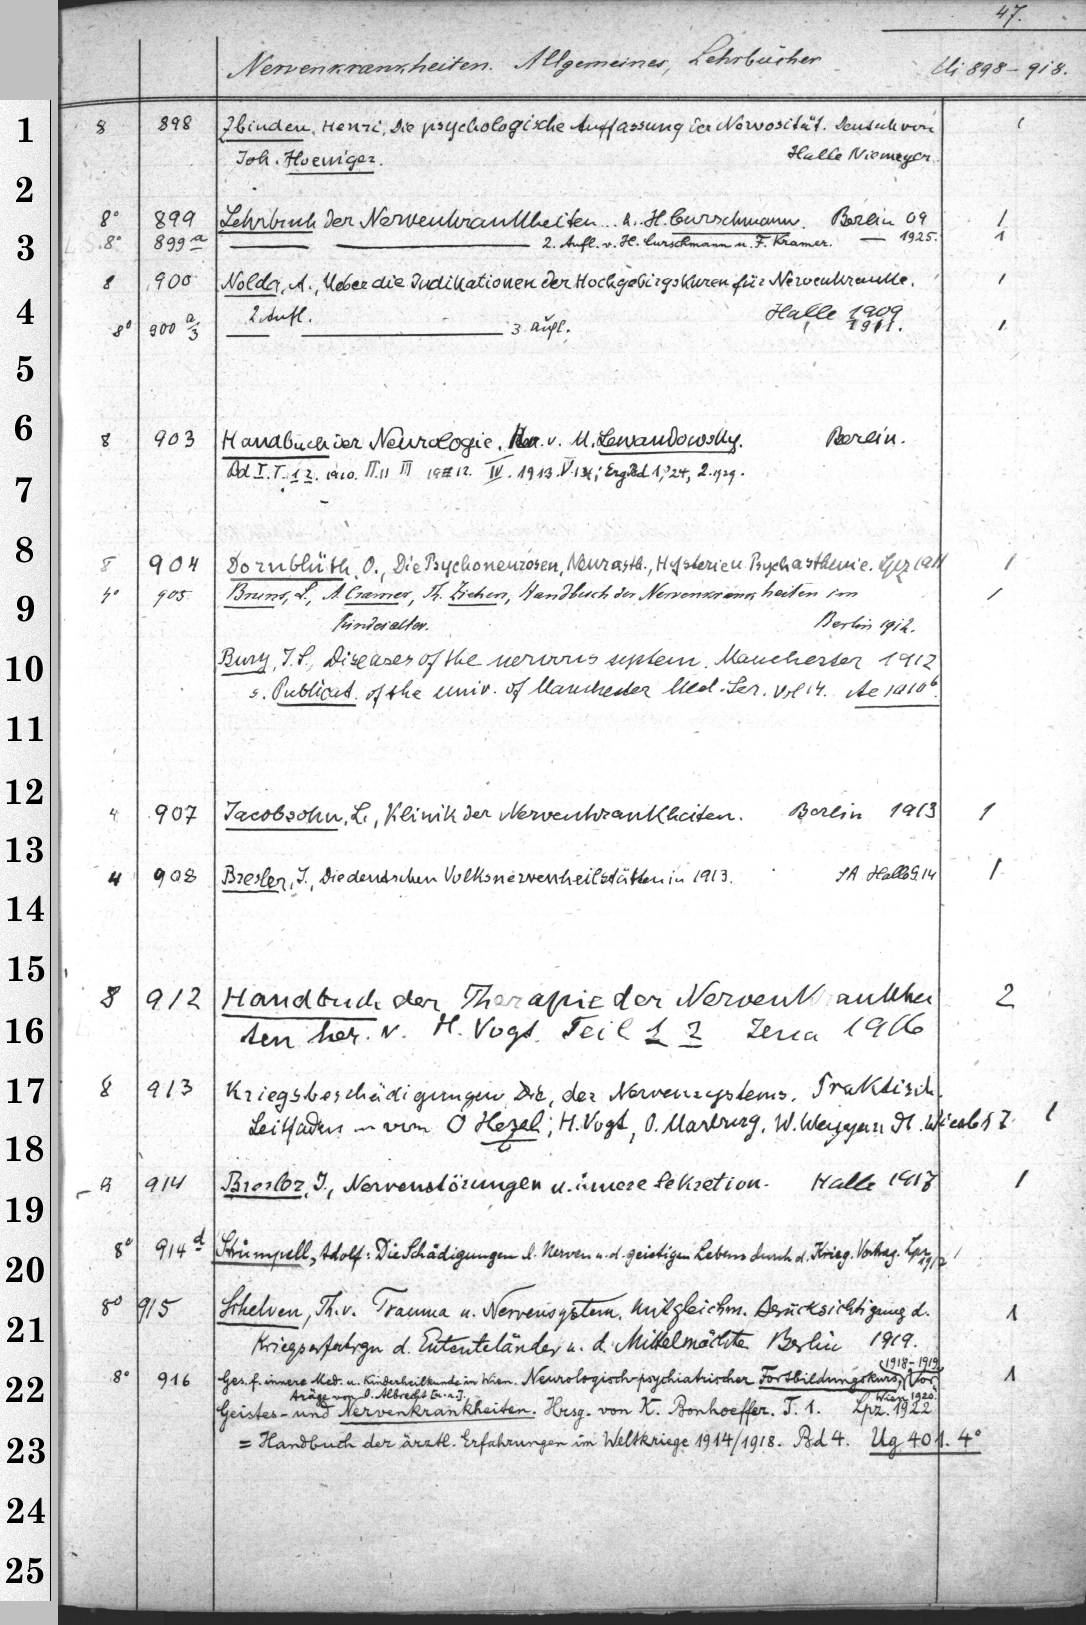 47.
Nervenkrankheiten. Allgemeines, Lehrbücher Ui 898–918.
1 8 898 Zbinden, Henri, Die psychologische Auffassung der Nervosität. Deutsch von 1
Joh. Hoeniger. Halle Niemeyer.
2
8° 899 Lehrbuch der Nervenkrankheiten... v. H. Curschmann. Berlin 09 1
3 8° 899 a 2. Aufl. v. H. Curschmann u. F. Kramer. — 1925. 1
8 900 Nolda, A., Ueber die Indikationen der Hochgebirgskuren für Nervenkranke. 1
4 2 Aufl. Halle 1909
8° 900 a/3 3. Aufl. 1911. 1
5
6 8 903 Handbuch der Neurologie. v. M. Lewandowsky. Berlin.
Bd I. T. 1 2. 1910. II. 11 III 1912. IV. 1913. V. ; Erg Bd 1, '24, 2. 1929.
7
8 8 904 Dornblüth, O., Die Psychoneurosen, Neurasth., Hysterie u. Psychasthenie. Lpz 1911 1
9 4° 905 Bruns, L., A. Cramer, Th. Ziehen, Handbuch der Nervenkrankheiten im 1
Kindesalter. Berlin 1912.
10 Bury, J. S., Diseases of the nervous system. Manchester 1912
s. Publicat. of the univ. of Manchester Med. Ser. Vol 14. Ae 1010 b.
11
12 4 907 Jacobsohn, L., Klinik der Nervenkrankheiten. Berlin 1913 1
13
4 908 Bresler, J., Die deutschen Volksnervenheilstätten in 1913. SA Halle 14 1
14
15
8 912 Handbuch der Therapie der Nervenkrankhei 2
16 ten her. v. H. Vogt. Teil 1 2 Jena 1916
17 8 913 Kriegsbeschädigungen, Die, des Nervensystems. Praktisch.
Leitfaden v. O Hezel, H. Vogt, O. Marburg, W. Weygandt. Wiesb 17 1
18
8 914 Bresler, J., Nervenstörungen u. innere Sekretion. Halle 1917 1
19
8° 914 d Strümpell, Adolf: Die Schädigungen d. Nerven u. d. geistigen Lebens durch d. Krieg. Vortrag. Lpz 1917 1
20
8° 915 Schelven, Th. v. Trauma u. Nervensystem. Mit gleichm. Berücksichtigung d. 1
21 Kriegserfahrgn d. Ententeländer u. d. Mittelmächte Berlin 1919.
(1918–1919)
22 8° 916 Ges. f. innere Med. u. Kinderheilkunde in Wien. Neurologisch-psychiatrischer Fortbildungskurs, (Vor- 1
träge von O. Albrecht [u. a.]. Wien 1920.
Geistes- und Nervenkrankheiten. Hrsg. von K. Bonhoeffer. T. 1. Lpz. 1922
23 = Handbuch der ärztl. Erfahrungen im Weltkriege 1914/1918. Bd 4. Ug 401. 4°
24
25